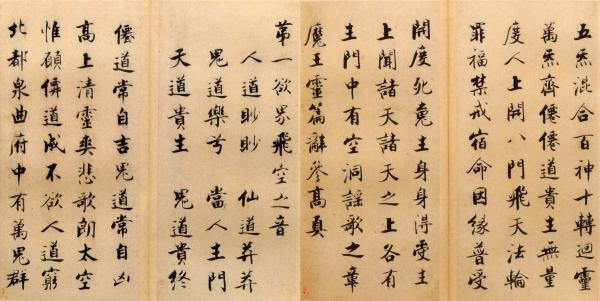 五炁混合百神十轉迴靈
萬炁齊僊僊道貴生無量
度人上開八門飛天法輪
罪福禁戒宿命因緣普受
開度死魂生身身得受生
上聞諸天諸天之上各有
生門中有空洞謠歌之章
魔王靈篇辭參高真
苐一欲界飛空之音
人道眇眇 仙道莽莽
鬼道樂兮 當人生門
天道貴生 鬼道貴終
僊道常自吉鬼道常自凶
高上清靈爽悲歌朗太空
惟願僊道成不欲人道窮
北都泉曲府中有萬鬼群